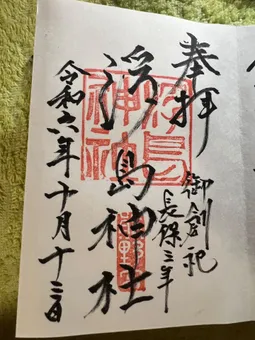 奉拝
御創祀
長保三年
浮島神社
令和六年十月十三日